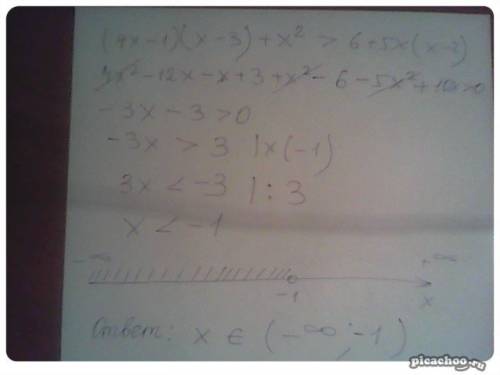 (4x-1)(x-3)+x² > 6+5x(x-2)
4x²-12x-x+3+x²-6-5x²+10x>0
-3x-3>0
-3x > 3 | x(-1)
3x < -3 | : 3
x < -1
-∞ +∞
-1 x
Ответ: x ∈ (-∞; -1)
picachoo.ru